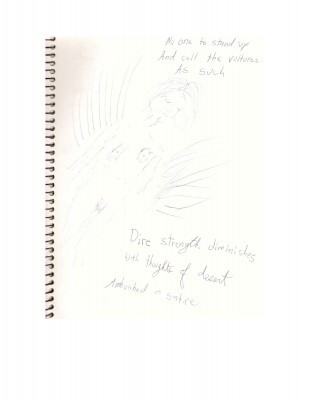 No one to stand up
And call the vultures
As such
Dire strength diminishes
with thoughts of desert
in satire